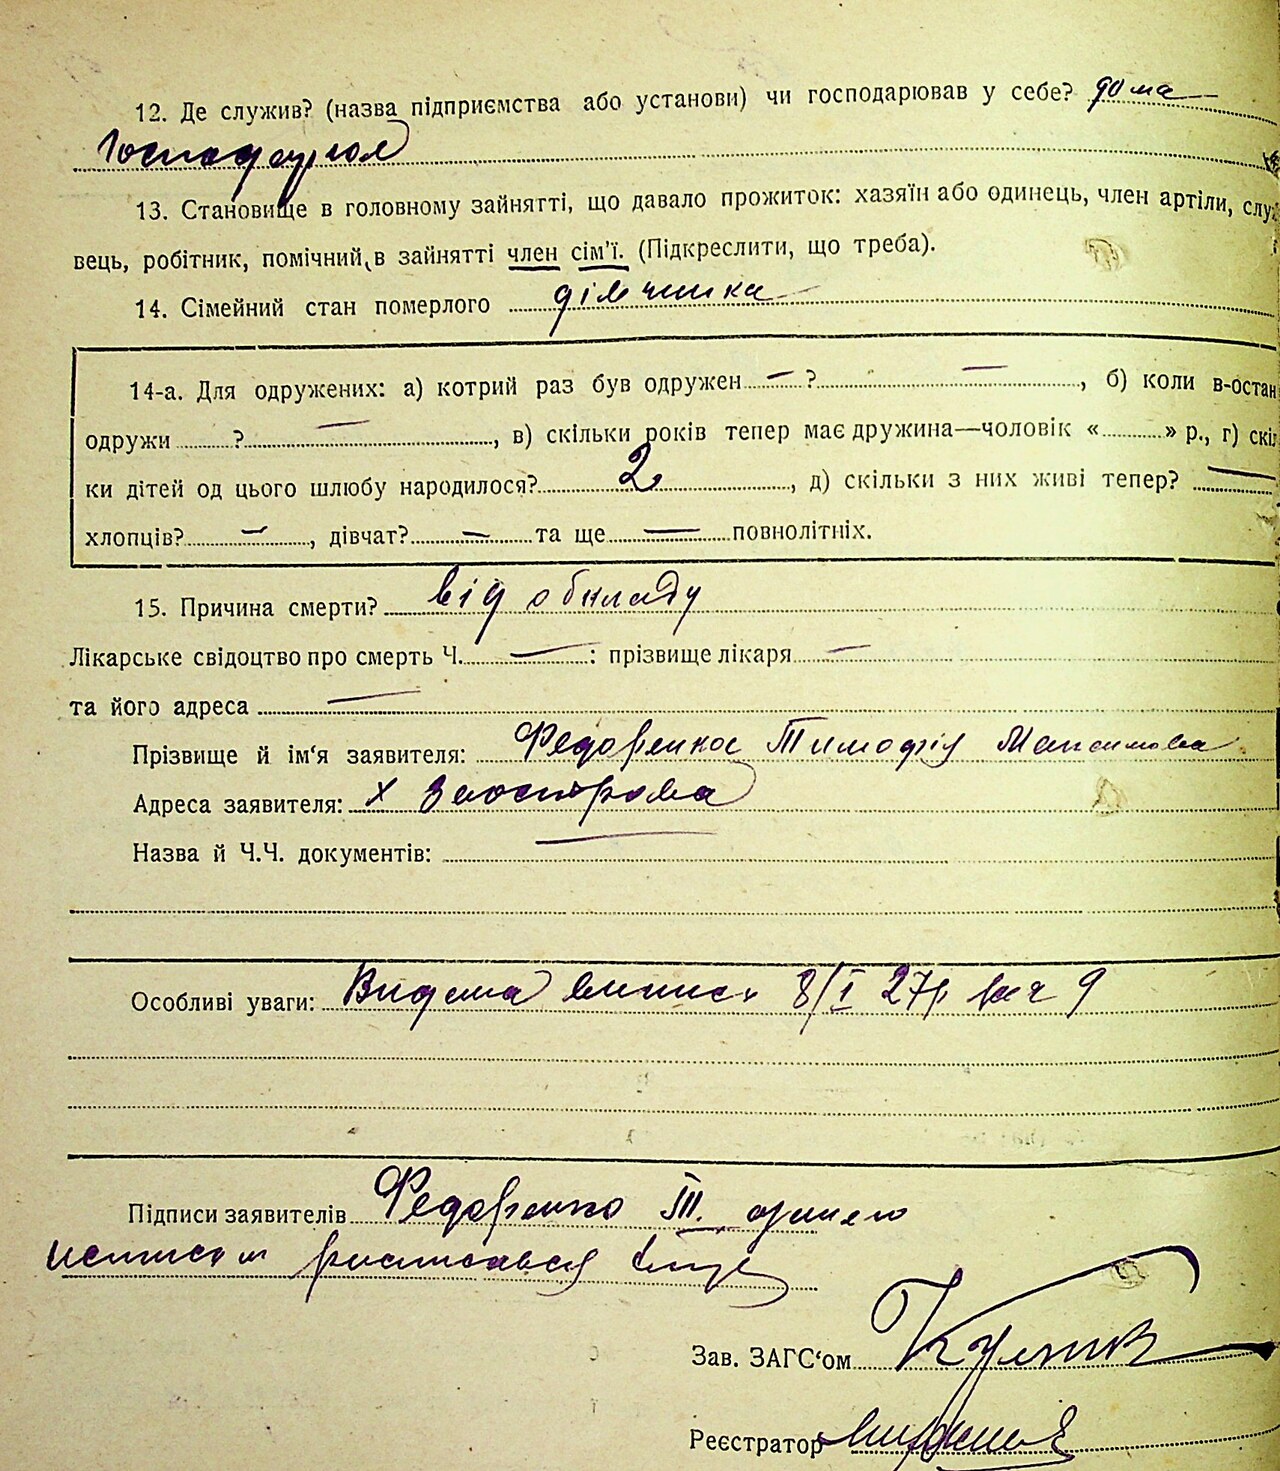 12. Де служив? (назва підприємства або установи) чи господарював у себе? дома
господарюв
13. Становище в головному зайнятті, що давало прожиток: хазяїн або одинець, член артіли, служ
вець, робітник, помічний в зайнятті член сім'ї. (Підкреслити, що треба).
14. Сімейний стан померлого дівчинка
14-а. Для одружених: а) котрий раз був одружен — ? —, б) коли в-остан
одружи ? —, в) скільки років тепер має дружина—чоловік « » р., г) скіл
ки дітей од цього шлюбу народилося? 2, д) скільки з них живі тепер? —
хлопців? —, дівчат? — та ще — повнолітніх.
15. Причина смерти? від обкладу
Лікарське свідоцтво про смерть Ч. — : прізвище лікаря —
та його адреса —
Прізвище й ім'я заявителя: Федоренко Тимофій Максимова
Адреса заявителя: х
Назва й Ч.Ч. документів: —
Особливі уваги: Видана 8/I 27р 9
Підписи заявителів Федоренко
росписався
Зав. ЗАГС'ом Кулик
Реєстратор